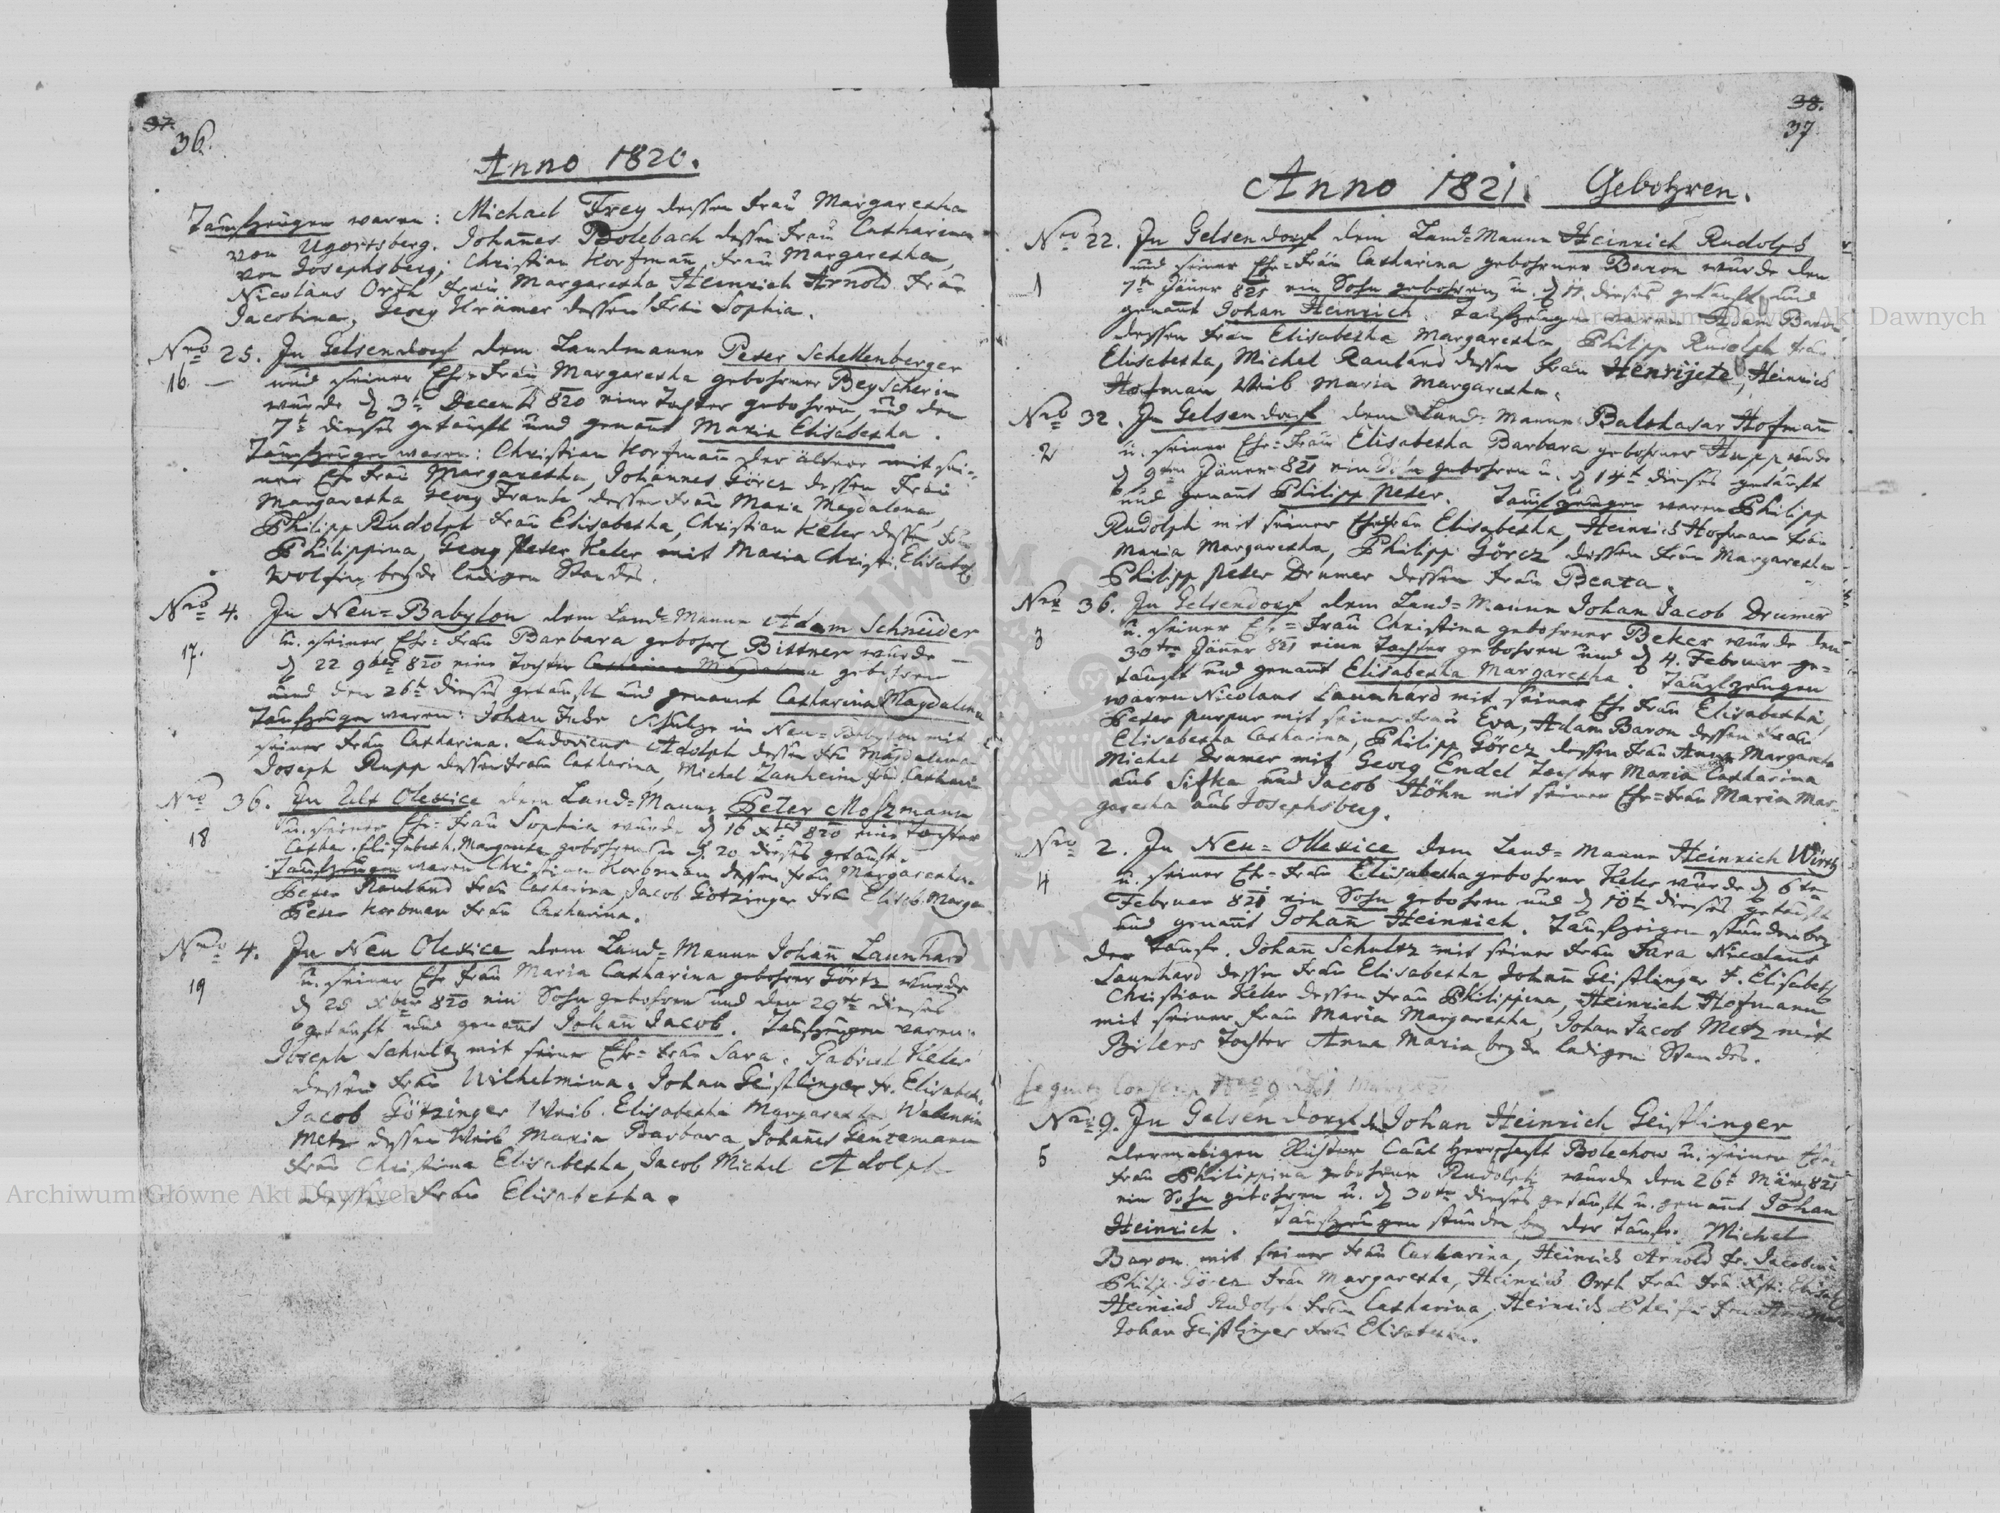 37.
36.
Anno 1820.
Taufzeugen waren: Michael Frey dessen Frau Margaretha
von Ugartsberg. Johannes Bolebach dessen Frau Catharina
von Josephsberg, Christian Korfmañ, Frau Margaretha,
Nicolaus Orth Frau Margaretha Heinrich Arnold Frau
Jacobina, Georg Krämer dessen Frau Sophia.
Nro 25. In Gelsendorf dem Landmanne Peter Schellenberger
16. — und seiner Ehe-Frau Margaretha gebohrner Beyscherin
wurde d 3t Decemb 820 eine Tochter gebohren, und den
7t dieses getauft und genañt Maria Elisabetha.
Taufzeugen waren: Christian Korfmañ der ältere mit sei-
ner Ehe Frau Margaretha, Johannes Görcz dessen Frau
Margaretha Georg Franke dessen Frau Maria Magdalena,
Philipp Rudolph Frau Elisabetha, Christian Keler dessen Fr.
Philippina, Georg Peter Keler mit Maria Christi: Elisabet
Wolfin beyde ledigen Standes.
Nro 4. In Neu-Babylon dem Land-Manne Adam Schneider
17. u. seiner Ehe-Frau Barbara gebohr Bittner wurde
d 22 9ber 820 eine Tochter Catharina Magdalena gebohren
und den 26t dieses getauft und genannt Catharina Magdalena
Taufzeugen waren: Johan Schultze in Neu-Babylon mit
seiner Frau Catharina. Ludovicus Adolph dessen Fr. Magdalena
Joseph Rupp dessen Frau Catharina, Michel Zanheim Frau Catharin
Nro 36. In Alt Olexice dem Land-Manne Peter Moszmann
18 u. seiner Ehe-Frau Sophia wurde d 16 xber 820 eine Tochter
Cathar. Elisabeth. Margareta gebohren u d. 20 dieses getauft.
Taufzeugen waren Christian Korbman dessen Frau Margaretha
Peter Rauland Frau Catharina Jacob Götzinger Frau Elisab. Marga
Peter Korbman Frau Catharina.
Nro 4. In Neu Olexice dem Land-Manne Johañ Launhard
19 u. seiner Ehe Frau Maria Catharina gebohrer Görtz wurde
d 28 xber 820 ein Sohn gebohren und den 29te dieses
getauft und genañt Johañ Jacob. Taufzeugen waren:
Joseph Schultz mit seiner Ehe-Frau Sara. Gabriel Keler
dessen Frau Wilhelmina. Johan Geistlinger Fr. Elisabet.
Jacob Götzinger Weib. Elisabetha Margaretha, Valentin
Metz dessen Weib Maria Barbara, Johañes Gentzmann
Frau Christina Elisabetha, Jacob Michel Adolph
dessen Frau Elisabetha.
38.
37
Anno 1821. Gebohren.
Nro 22. In Gelsendorf dem Land-Manne Heinrich Rudolph
und seiner Ehe-Frau Catharina gebohrner Baron wurde den
1 7te Jäner 821 ein Sohn gebohren, u. d 11 dieses getauft und
genañt Johan Heinrich. Taufzeugen waren Adam Baron
dessen Frau Elisabetha Margaretha, Philipp Rudolph Frau
Elisabetha, Michel Rauland dessen Frau Henrijete, Heinrich
Hofman Weib Maria Margaretha.
Nro 32. In Gelsendorf dem Land-Manne Balthasar Hofmañ
2 u. seiner Ehe-Frau Elisabetha Barbara gebohrner Hupp wurde
d 9ten Jäner 821 ein Sohn gebohren u. d 14te dieses getauft
und genañt Philipp Peter. Taufzeugen waren Philipp
Rudolph mit seiner Ehefrau Elisabetha, Heinrich Hofman Frau
Maria Margaretha, Philipp Görcz dessen Frau Margaretha
Philipp Peter Drumer dessen Frau Beata.
Nro 36. In Gelsendorf dem Land-Manne Johan Jacob Drumer
3 u. seiner Ehe-Frau Christina gebohrner Beker wurde den
30ten Jäner 821 eine Tochter gebohren und d 4. Februar ge-
tauft und genañt Elisabetha Margaretha. Taufzeugen
waren Nicolaus Launhard mit seiner Ehe Frau Elisabetha,
Peter Purpur mit seiner Frau Eva, Adam Baron dessen Frau
Elisabetha Catharina, Philipp Görcz dessen Frau Anna Margareta
Michel Drumer mit Georg Endel Tochter Maria Catharina
aus Sifka und Jacob Höhn mit seiner Ehe-Frau Maria Mar-
garetha aus Josephsberg.
Nro 2. In Neu-Ollexice dem Land-Manne Heinrich Wirtz
4 u. seiner Ehe-Frau Elisabetha gebohrner Keler wurde d 6te
Februar 821 ein Sohn gebohren und d 10te dieses getauft
und genañt Johañ Heinrich. Taufzeugen stunden bey
der Taufe. Johañ Schultz mit seiner Frau Sara Nicolaus
Launhard dessen Frau Elisabetha Johañ Geistlinger F. Elisabeth
Christian Keler dessen Frau Philippina, Heinrich Hofmann
mit seiner Frau Maria Margaretha, Johan Jacob Metz mit
Bilers Tochter Anna Maria beyde ledigen Standes.
Nro 9. In Gelsendorf Johan Heinrich Geistlinger
5 dermaligen Richter Herrschaft Bolechow u. seiner Ehe
Frau Philippina gebohrne Rudolph wurde den 26t März 821
ein Sohn gebohren u. d 30te dieses getauft u. genañt Johan
Heinrich. Taufzeugen stunden bey der Taufe. Michel
Baron mit seiner Frau Catharina, Heinrich Arnold Fr. Jacobina
Philip Görcz Frau Margaretha, Heinrich Orth Frau
Heinrich Rudolph Frau Catharina, Heinrich
Johan Geistlinger Frau Elisabetha.
Archiwum Główne Akt Dawnych
Archiwum Główne Akt Dawnych